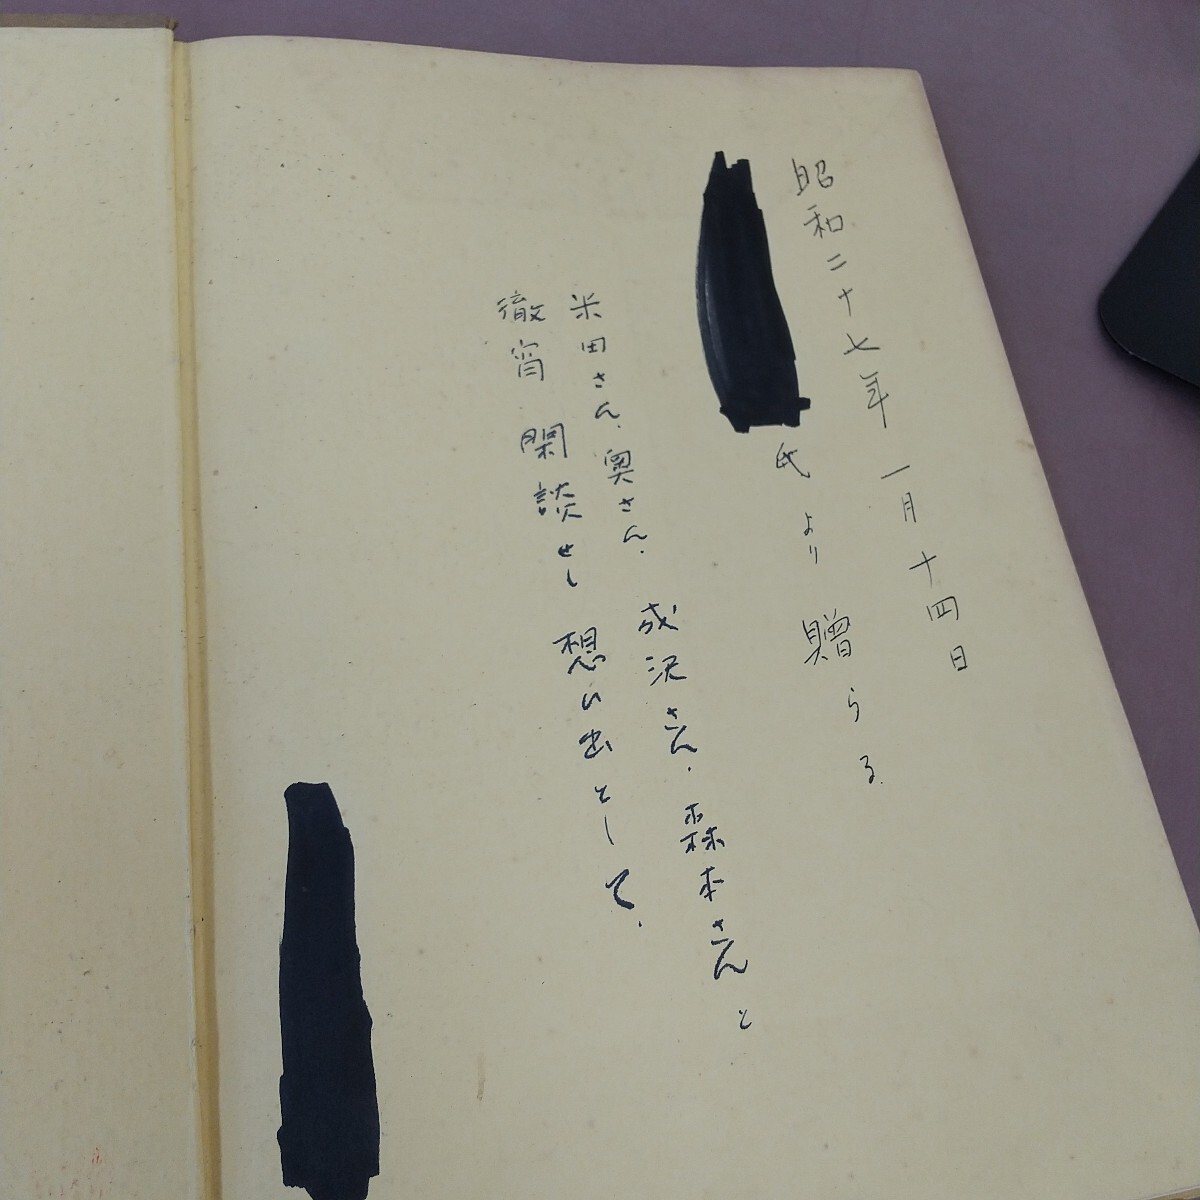 昭和二十七年 一月十四日
氏より 贈らる.
米田さん、奥さん、成沢さん、森本さんと
徹宵 閑談せし 想い出として、